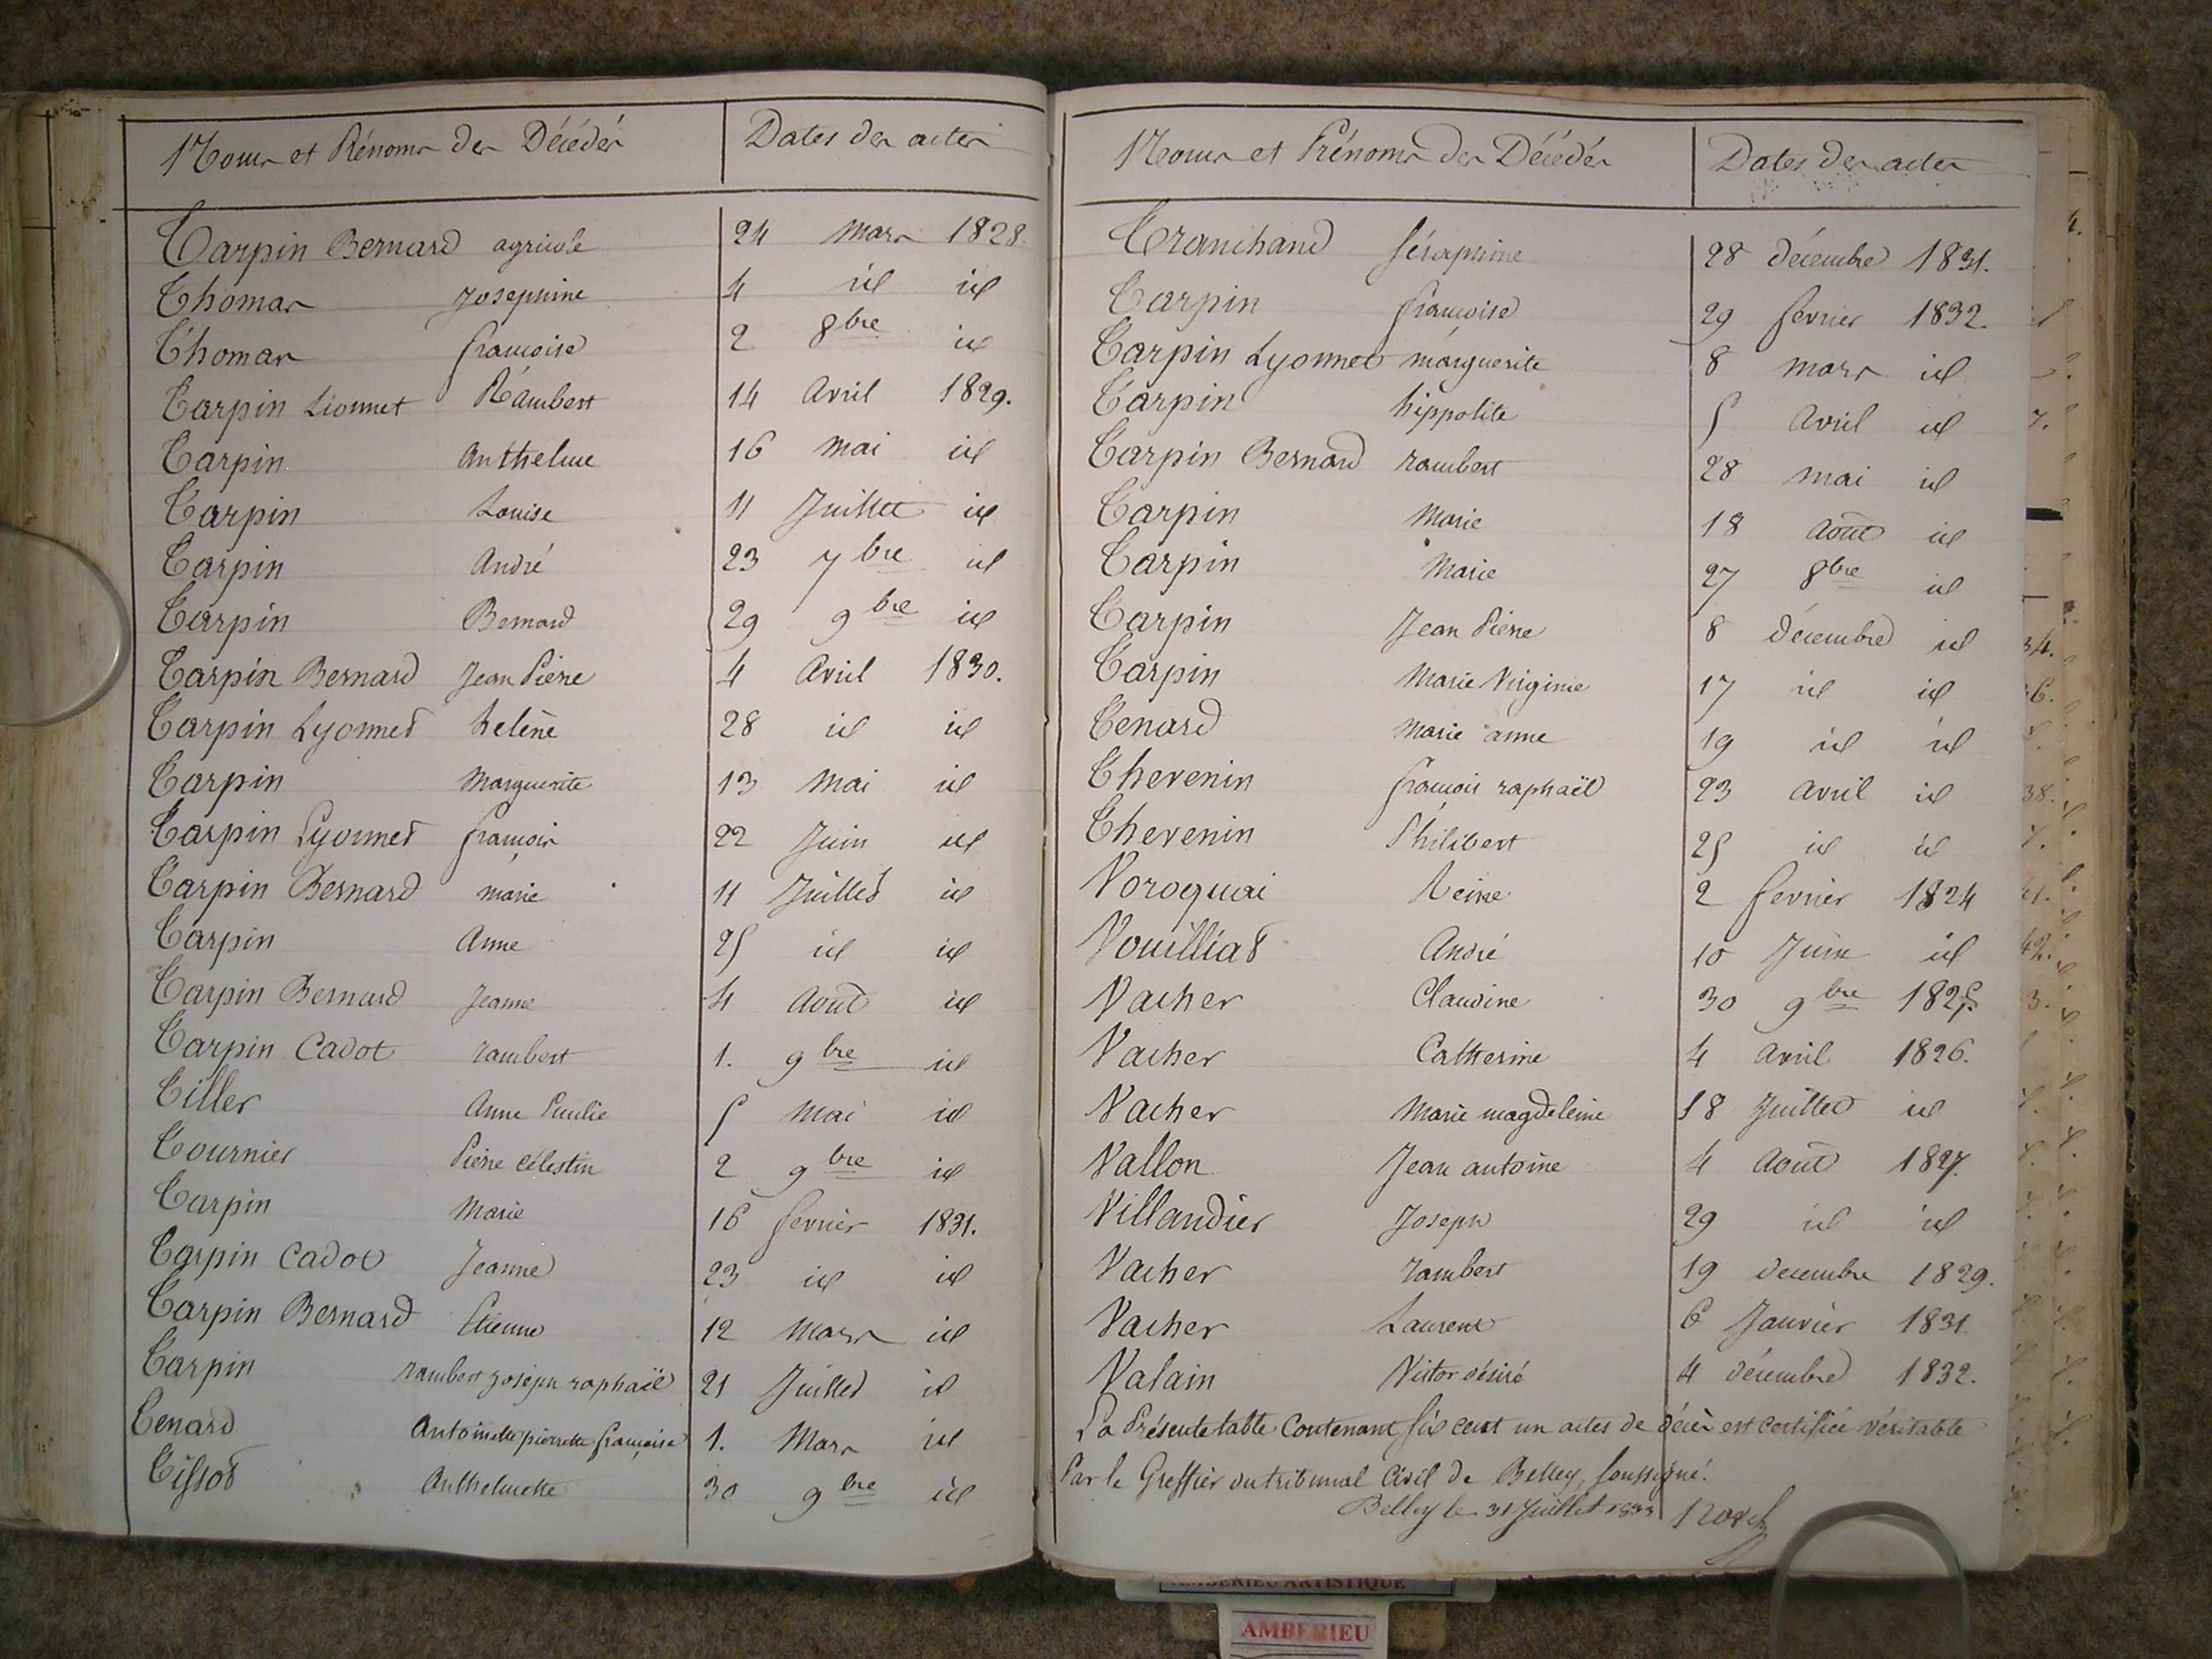 Noms et Prénoms des Décédés Dates des actes
Tarpin Bernard agricole 24 Mars 1828.
Thomas Josephine 4 id id
Thomas françoise 2 8bre id
Tarpin Lionnet Rambert 14 Avril 1829.
Tarpin Anthelme 16 Mai id
Tarpin Louise 11 Juillet id
Tarpin André 23 7bre id
Tarpin Bernard 29 9bre id
Tarpin Bernard Jean Pierre 4 Avril 1830.
Tarpin Lyonnet helène 28 id id
Tarpin Marguerite 13 Mai id
Tarpin Lyonnet françois 22 Juin id
Tarpin Bernard marie 11 Juillet id
Tarpin Anne 25 id id
Tarpin Bernard Jeanne 4 Août id
Tarpin Cadot rambert 1. 9bre id
Tiller Anne 5 Mai id
Tournier Pierre célestin 2 9bre id
Tarpin Marie 16 fevrier 1831.
Tarpin Cadot Jeanne 23 id id
Tarpin Bernard Etienne 12 Mars id
Tarpin rambert joseph raphaël 21 Juillet id
Tenard Antoinette pierrette françoise 1. Mars id
Tissot Anthelmette 30 9bre id
Noms et Prénoms des Décédés Dates des actes
Tranchand séraphine 28 décembre 1831.
Tarpin françoise 29 fevrier 1832.
Tarpin Lyonnet marguerite 8 mars id
Tarpin hippolite 5 Avril id
Tarpin Bernard rambert 28 mai id
Tarpin Marie 18 août id
Tarpin Marie 27 8bre id
Tarpin Jean Pierre 8 décembre id
Tarpin Marie Virginie 17 id id
Tenard Marie anne 19 id id
Thevenin françois raphaël 23 avril id
Thevenin Philibert 25 id id
Voroquai Reine 2 fevrier 1824
Vouilliat André 10 Juin id
Vacher Claudine 30 9bre 1825.
Vacher Catherine 4 Avril 1826.
Vacher Marie magdeleine 18 Juillet id
Vallon Jean antoine 4 Août 1827.
Villandier Joseph 29 id id
Vacher rambert 19 decembre 1829.
Vacher Laurent 6 Janvier 1831.
Valain Victor désiré 4 décembre 1832.
La Présente table contenant six cent un actes de décès est certifiée véritable
Par le Greffier du tribunal Civil de Belley, soussigné.
Belley le 31 Juillet 1833
AMBERIEU ARTISTIQUE
AMBERIEU